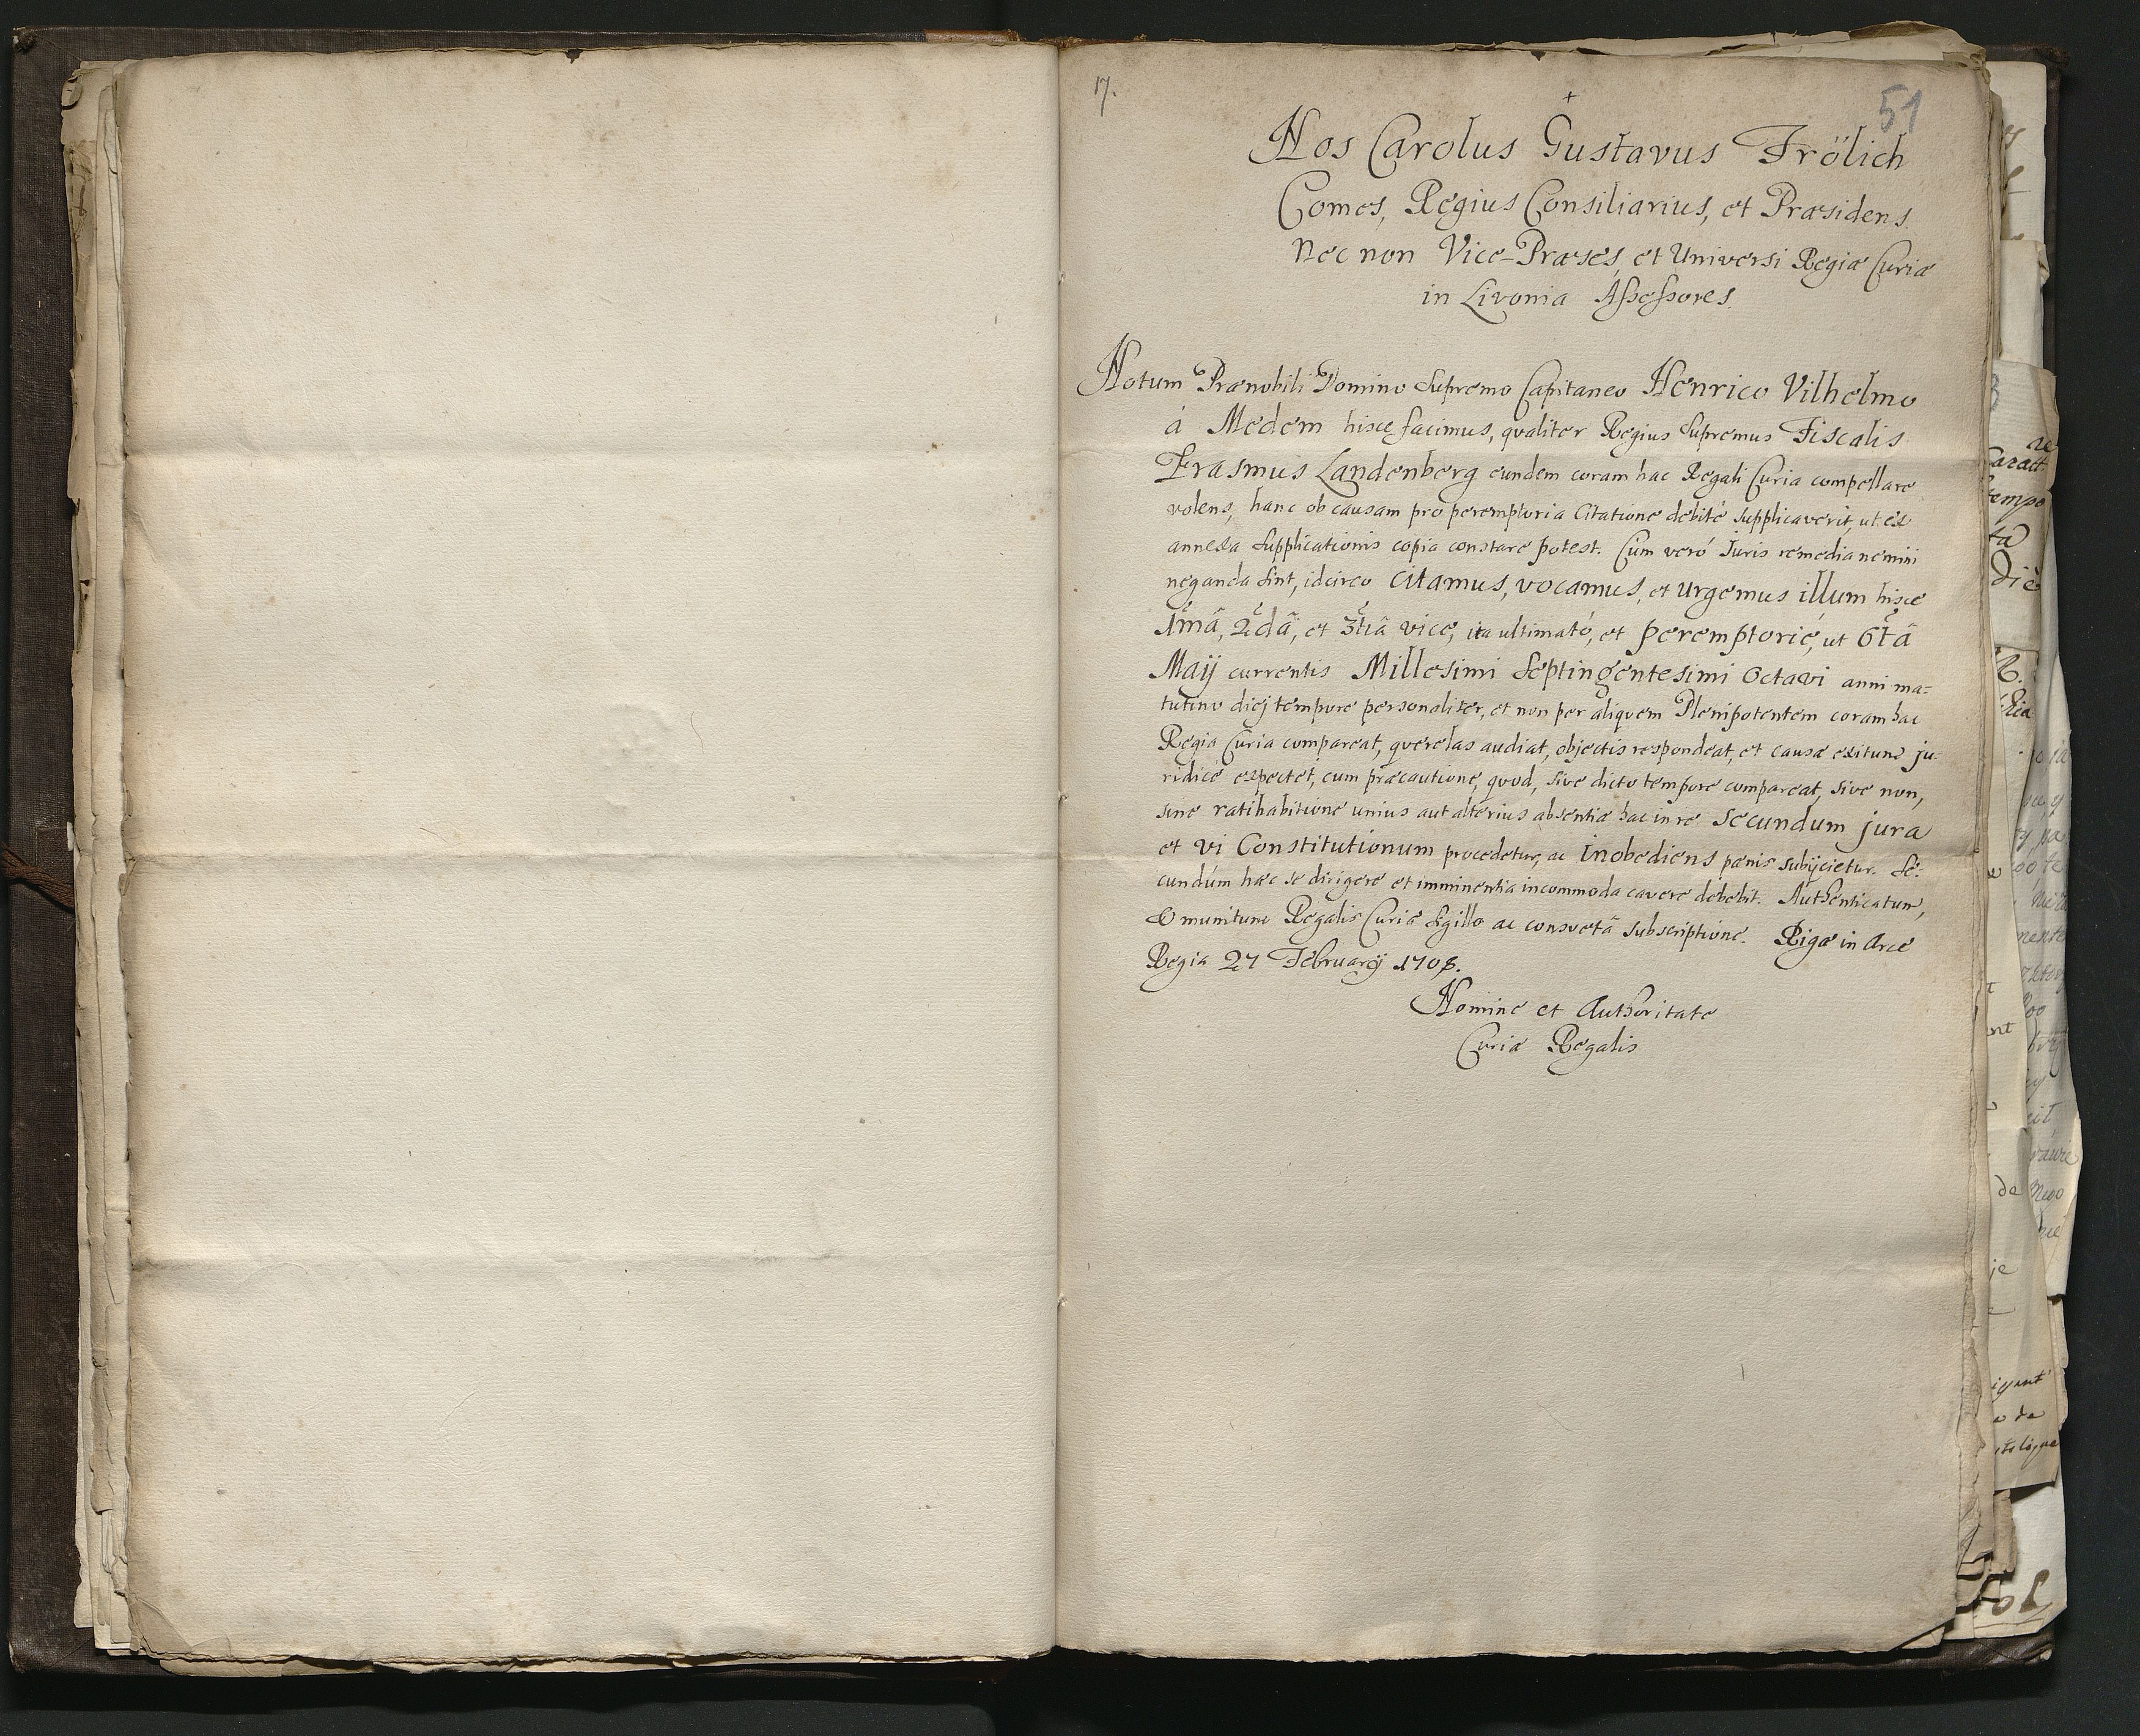 17.
51
Nos Carolus Gustavus Frölich
Comes, Regius Consiliarius, et Præsidens
Nec non Vice-Præses, et Universi Regiæ Curiæ
in Livonia Assessores.
Notum Prænobili Domino Supremo Capitaneo Henrico Vilhelmo
á Medem hisce facimus, qvaliter Regius Supremus Fiscalis
Erasmus Landenberg eundem coram hac Regali Curia compellare
volens, hanc ob causam pro peremptoria Citatione debité supplicaverit, ut ex
annexa Supplicationis copia constare potest. Cum veró Juris remedia nemini
neganda sint, idcirco citamus, vocamus, et urgemus illum hisce
1mâ, 2dâ, et 3tiâ vice, ita ultimató, et peremptorié, ut 6tâ
Maÿ currentis Millesimi Septingentesimi Octavi anni ma=
tutino diej tempore personaliter, et non per aliqvem Plenipotentem coram hac
Regia Curia compareat, qverelas audiat, objectis respondeat, et causæ exitum ju-
ridicé expectet, cum præcautione, qvod, sive dicto tempore compareat, sive non,
sine ratihabitione unius aut alterius absentiæ hac in re secundum jura
et vi Constitutionum procedetur, ac inobediens pænis subÿcietur. Se:
cundúm hæc se dirigere et imminentia incommoda cavere debebit. Authenticatum,
& munitum Regalis Curiæ sigillo ac consvetâ subscriptione. Rigæ in Arce
Regia 27 Februarÿ 1708.
Nomine et Authoritate
Curiæ Regalis